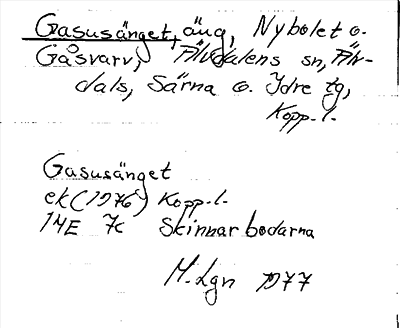 Gasusänget, äng, Nybolet o.
Gåsvarv, Älvdalens sn, Älv-
dals, Särna o. Idre tg,
Kopp. l.
Gasusänget
ek (1976) Kopp. l.
14E 7c Skinnarbodarna
M. Lgn 1977